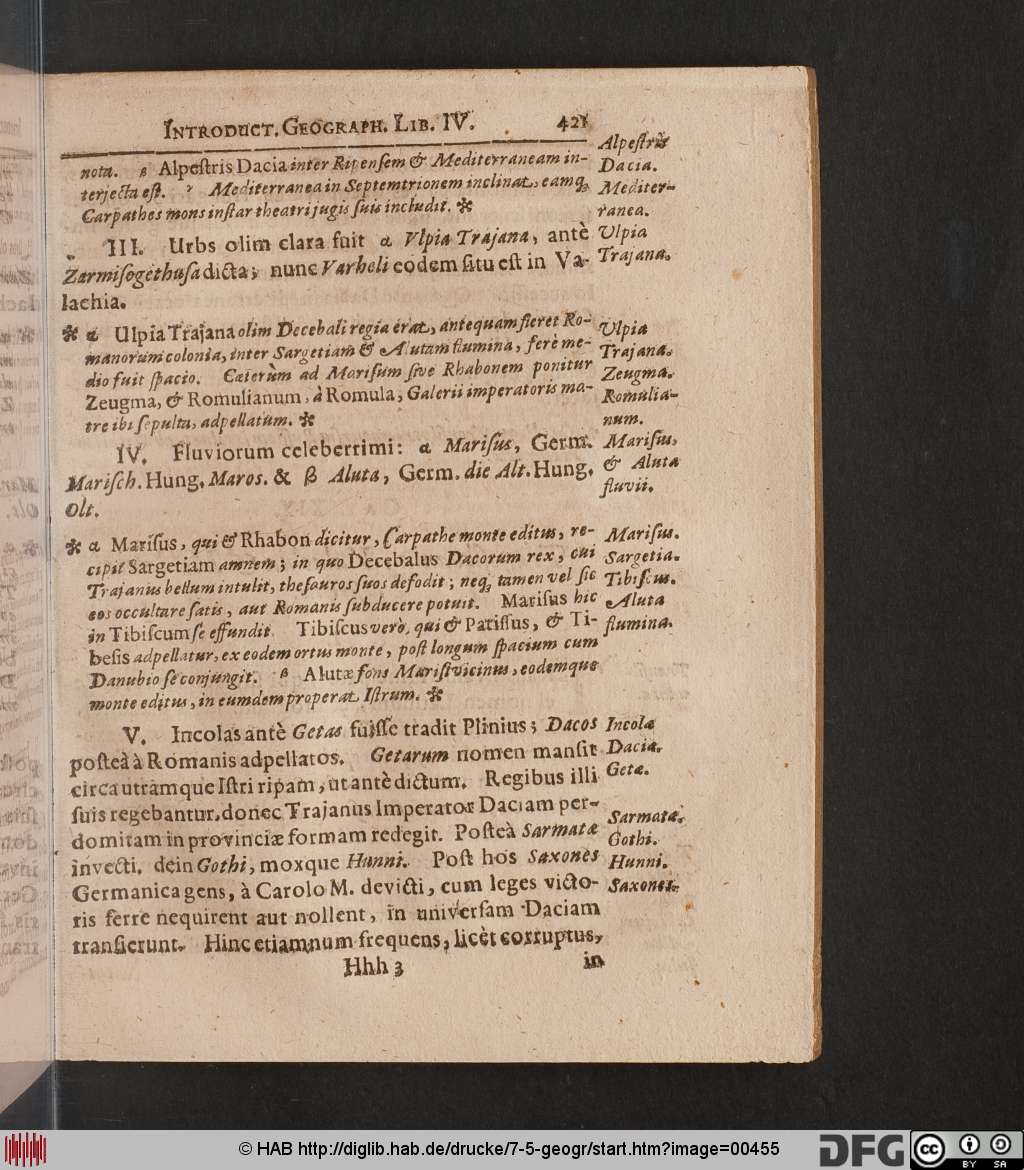 INTRODUCT. GEOGRAPH. LIB. IV. 421
nota. β Alpeſtris Dacia inter Ripenſem & Mediterraneam in-
terjecta eſt. γ Mediterranea in Septemtrionem inclinat, eamq;
Carpathes mons inſtar theatri jugis ſuis includit. ✻
Alpeſtris
Dacia.
Mediter-
ranea.
III. Urbs olim clara fuit α Vlpia Trajana, antè
Zarmiſogethuſa dicta; nunc Varheli eodem ſitu eſt in Va-
lachia.
Ulpia
Trajana.
✻ α Ulpia Trajana olim Decebali regia erat, antequam fieret Ro-
manorum colonia, inter Sargetiam & Alutam flumina, ferè me-
dio fuit ſpacio. Cæterùm ad Mariſum ſive Rhabonem ponitur
Zeugma, & Romulianum, à Romula, Galerii imperatoris ma-
tre ibi ſepulta, adpellatum. ✻
Ulpia
Trajana.
Zeugma.
Romulia-
num.
IV. Fluviorum celeberrimi: α Mariſus, Germ.
Mariſch. Hung. Maros. & β Aluta, Germ. die Alt. Hung.
Olt.
Mariſus,
& Aluta
fluvii.
✻ α Mariſus, qui & Rhabon dicitur, Carpathe monte editus, re-
cipit Sargetiam amnem; in quo Decebalus Dacorum rex, cui
Trajanus bellum intulit, theſauros ſuos defodit; neq; tamen vel ſic
eos occultare ſatis, aut Romanis ſubducere potuit. Mariſus hic
in Tibiſcum ſe effundit. Tibiſcus verò, qui & Patiſſus, & Ti-
beſis adpellatur, ex eodem ortus monte, poſt longum ſpacium cum
Danubio ſe conjungit. β Alutæ fons Mariſi vicinus, eodemque
monte editus, in eumdem properat Iſtrum. ✻
Mariſus.
Sargetia.
Tibiſcus.
Aluta
flumina.
V. Incolas antè Getas fuiſſe tradit Plinius; Dacos
poſteà à Romanis adpellatos. Getarum nomen manſit
circa utramque Iſtri ripam, ut antè dictum. Regibus illi
ſuis regebantur, donec Trajanus Imperator Daciam per-
domitam in provinciæ formam redegit. Poſteà Sarmatæ
invecti, dein Gothi, moxque Hunni. Poſt hos Saxones
Germanica gens, à Carolo M. devicti, cum leges victo-
ris ferre nequirent aut nollent, in univerſam Daciam
tranſierunt. Hinc etiamnum frequens, licèt corruptus,
Incolæ
Daciæ.
Getæ.
Sarmatæ.
Gothi.
Hunni.
Saxones.
Hhh 3 in
© HAB http://diglib.hab.de/drucke/7-5-geogr/start.htm?image=00455
DFG
cc BY SA